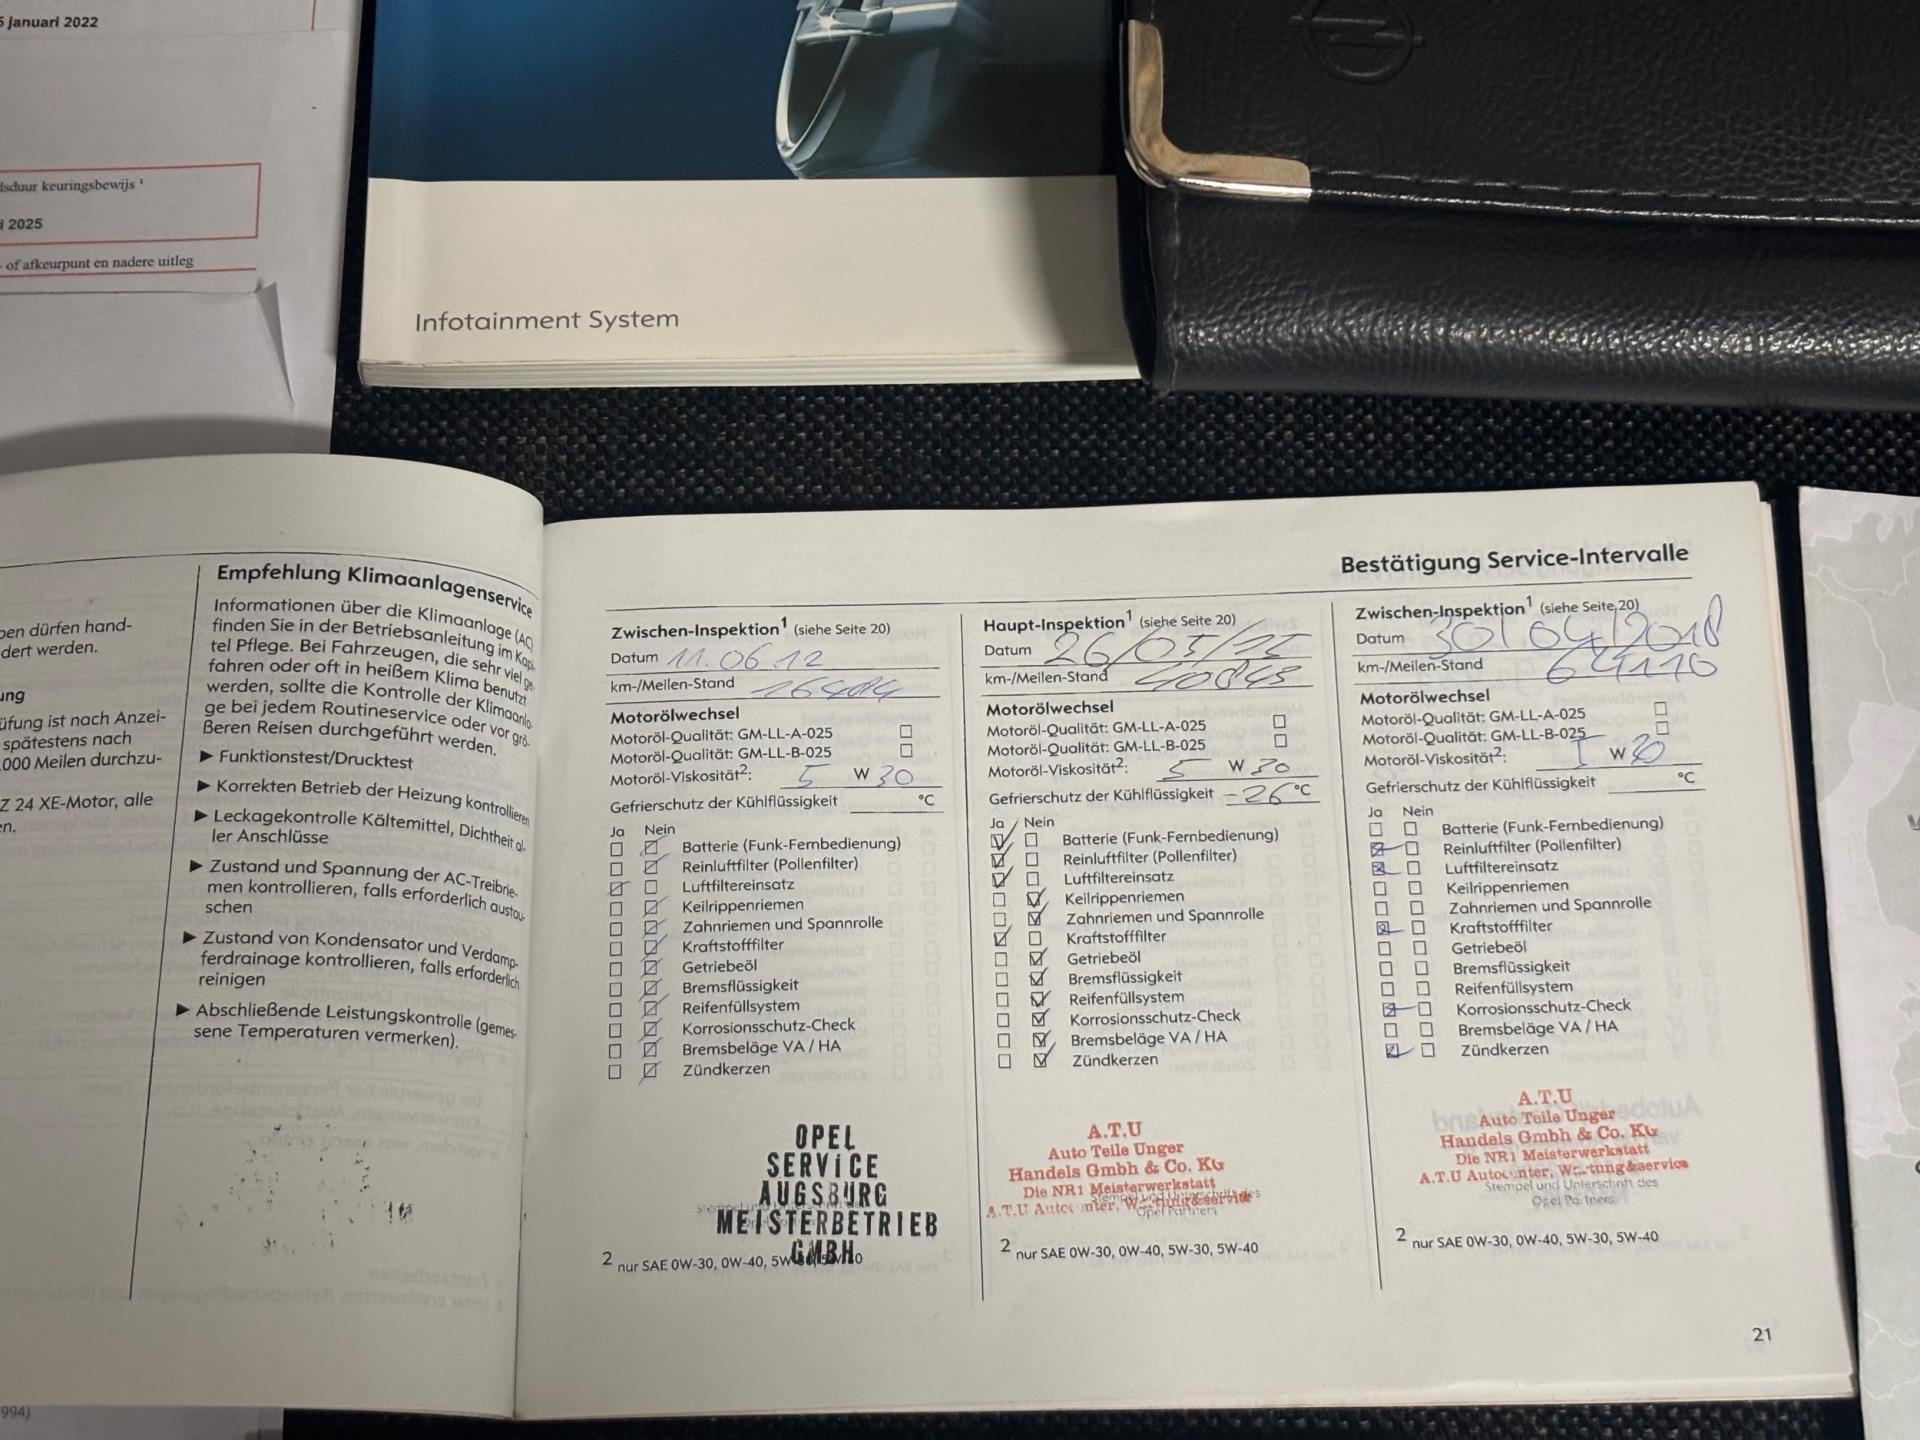 januari 2022
keuringsbewijs ¹
2025
- of afkeurpunt en nadere uitleg
Infotainment System
dürfen hand-
dert werden.
ung
üfung ist nach Anzei-
spätestens nach
000 Meilen durchzu-
Z 24 XE-Motor, alle
en.
994)
Empfehlung Klimaanlagenservice
Informationen über die Klimaanlage (AC)
finden Sie in der Betriebsanleitung im Kapi-
tel Pflege. Bei Fahrzeugen, die sehr viel ge-
fahren oder oft in heißem Klima benutzt
werden, sollte die Kontrolle der Klimaanla-
ge bei jedem Routineservice oder vor grö-
ßeren Reisen durchgeführt werden.
► Funktionstest/Drucktest
► Korrekten Betrieb der Heizung kontrollieren
► Leckagekontrolle Kältemittel, Dichtheit al-
ler Anschlüsse
► Zustand und Spannung der AC-Treibrie-
men kontrollieren, falls erforderlich austau-
schen
► Zustand von Kondensator und Verdamp-
ferdrainage kontrollieren, falls erforderlich
reinigen
► Abschließende Leistungskontrolle (gemes-
sene Temperaturen vermerken).
Bestätigung Service-Intervalle
Zwischen-Inspektion¹ (siehe Seite 20)
Datum 11.06.12
km-/Meilen-Stand
Motorölwechsel
Motoröl-Qualität: GM-LL-A-025
Motoröl-Qualität: GM-LL-B-025
Motoröl-Viskosität²: 5 W 30
Gefrierschutz der Kühlflüssigkeit °C
Ja Nein
Batterie (Funk-Fernbedienung)
Reinluftfilter (Pollenfilter)
Luftfiltereinsatz
Keilrippenriemen
Zahnriemen und Spannrolle
Kraftstofffilter
Getriebeöl
Bremsflüssigkeit
Reifenfüllsystem
Korrosionsschutz-Check
Bremsbeläge VA / HA
Zündkerzen
OPEL
SERVICE
AUGSBURG
MEISTERBETRIEB
GMBH
2 nur SAE 0W-30, 0W-40,
Haupt-Inspektion¹ (siehe Seite 20)
Datum 26/03/15
km-/Meilen-Stand 40843
Motorölwechsel
Motoröl-Qualität: GM-LL-A-025
Motoröl-Qualität: GM-LL-B-025
Motoröl-Viskosität²: 5 W 30
Gefrierschutz der Kühlflüssigkeit -26 °C
Ja Nein
Batterie (Funk-Fernbedienung)
Reinluftfilter (Pollenfilter)
Luftfiltereinsatz
Keilrippenriemen
Zahnriemen und Spannrolle
Kraftstofffilter
Getriebeöl
Bremsflüssigkeit
Reifenfüllsystem
Korrosionsschutz-Check
Bremsbeläge VA / HA
Zündkerzen
A.T.U
Auto Teile Unger
Handels Gmbh & Co. KG
Die NR1 Meisterwerkstatt
A.T.U
Opel Partners
2 nur SAE 0W-30, 0W-40, 5W-30, 5W-40
Zwischen-Inspektion¹ (siehe Seite 20)
Datum 30/04/2018
km-/Meilen-Stand 64110
Motorölwechsel
Motoröl-Qualität: GM-LL-A-025
Motoröl-Qualität: GM-LL-B-025
Motoröl-Viskosität²: 5 W 30
Gefrierschutz der Kühlflüssigkeit °C
Ja Nein
Batterie (Funk-Fernbedienung)
Reinluftfilter (Pollenfilter)
Luftfiltereinsatz
Keilrippenriemen
Zahnriemen und Spannrolle
Kraftstofffilter
Getriebeöl
Bremsflüssigkeit
Reifenfüllsystem
Korrosionsschutz-Check
Bremsbeläge VA / HA
Zündkerzen
A.T.U
Auto Teile Unger
Handels Gmbh & Co. KG
Die NR1 Meisterwerkstatt
A.T.U
Stempel und Unterschrift des
Opel Partners
2 nur SAE 0W-30, 0W-40, 5W-30, 5W-40
21